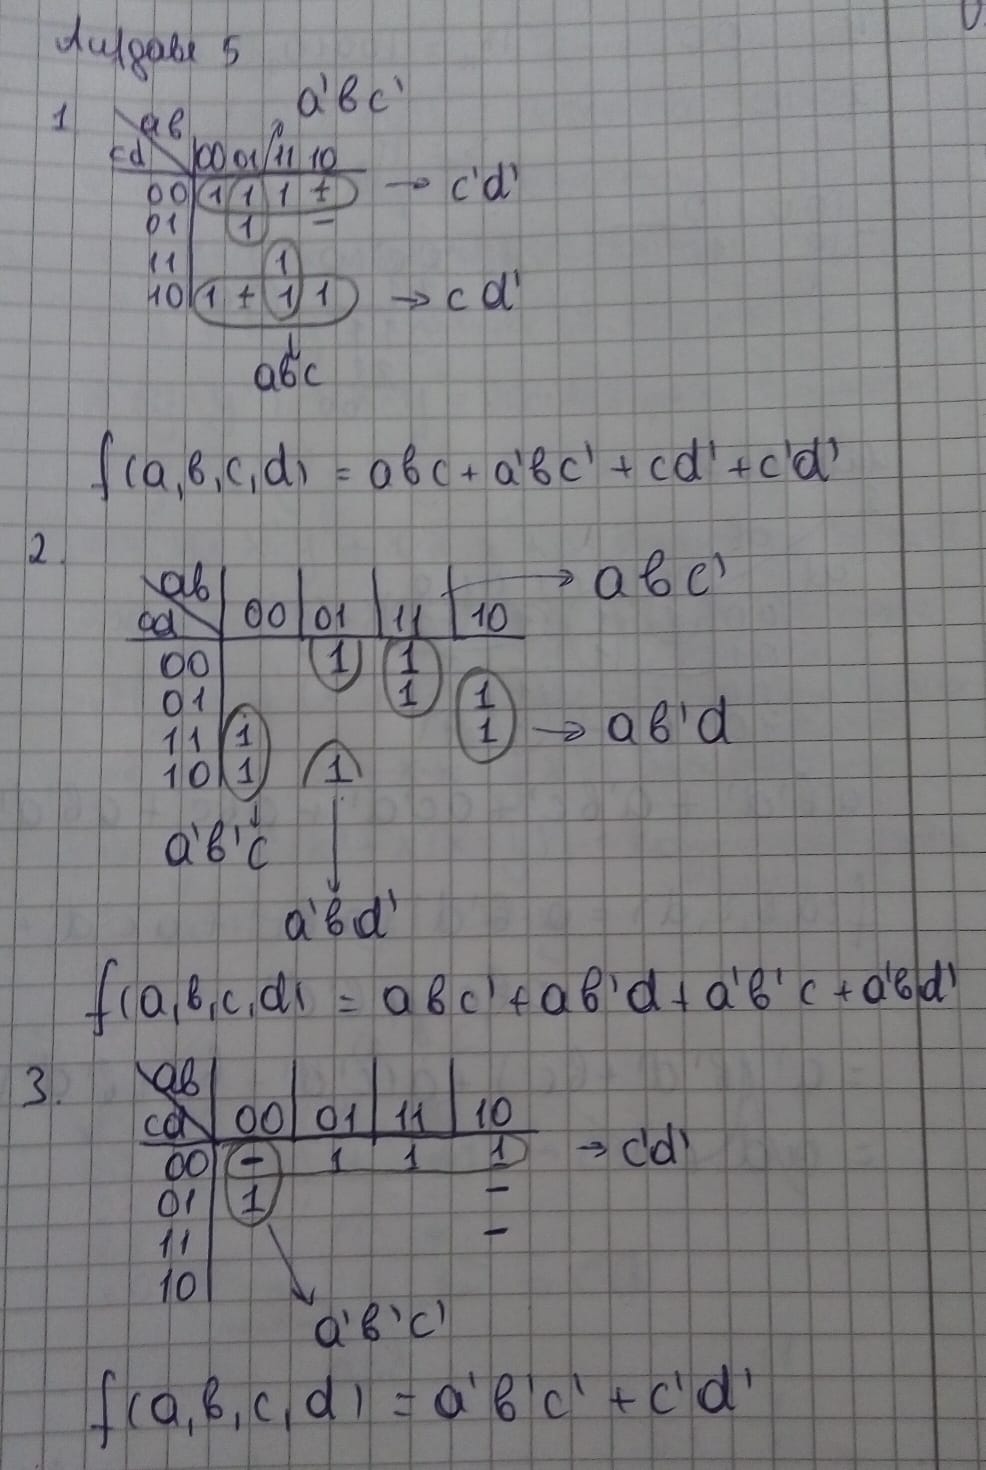 Aufgabe 5
a'bc'
1 ab
cd 00 01 11 10
00 1 1 1 + → c'd'
01 1 -
11 1
10 1 + 1 1 → cd'
abc
f(a,b,c,d) = abc + a'bc' + cd' + c'd'
2.
ab → abc'
cd 00 01 11 10
00 1 1
01 1 1
11 1 1 → ab'd
10 1 1
a'b'c
a'bd'
f(a,b,c,d) = abc' + ab'd + a'b'c + a'bd'
3. ab
cd 00 01 11 10
00 - 1 1 1 → c'd'
01 1 -
11 -
10
a'b'c'
f(a,b,c,d) = a'b'c' + c'd'